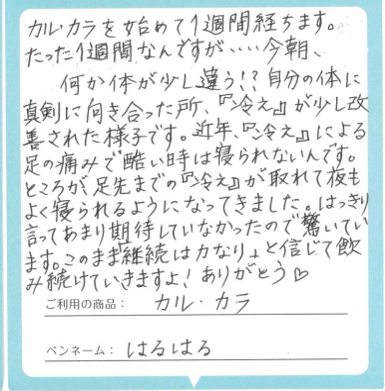 カル・カラを始めて1週間経ちます。
たった1週間なんですが‥‥今朝、
何か体が少し違う!?自分の体に
真剣に向き合った所、『冷え』が少し改
善された様子です。近年、『冷え』による
足の痛みで酷い時は寝られないんです。
ところが、足先までの『冷え』が取れて夜も
よく寝られるようになってきました。はっきり
言ってあまり期待していなかったので驚いてい
ます。このまま「継続は力なり」と信じて飲
み続けていきますよ!ありがとう♡
ご利用の商品: カル・カラ
ペンネーム: はるはる